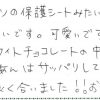 ソの保護シートみたい
いです。可愛いでで
ワイトチョコレートの中
あんはサッパリして
よく合いました!!お